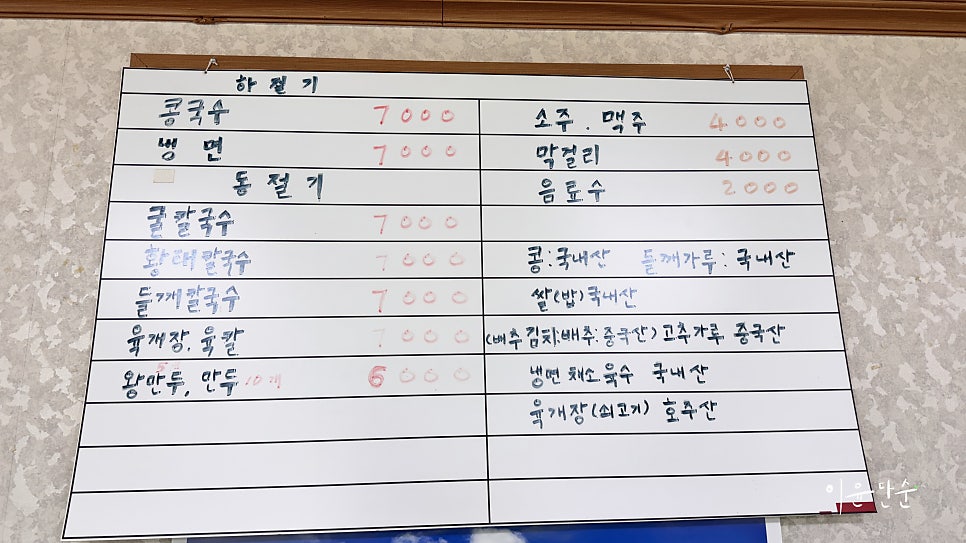 하절기
콩국수 7000
냉면 7000
동절기
굴칼국수 7000
황태칼국수 7000
들깨칼국수 7000
육개장, 육칼 7000
왕만두, 만두 10개 6000
소주. 맥주 4000
막걸리 4000
음료수 2000
콩:국내산 들깨가루: 국내산
쌀(밥)국내산
(배추김치:배추:중국산) 고추가루 중국산
냉면 채소 육수 국내산
육개장(쇠고기) 호주산
이윤단순